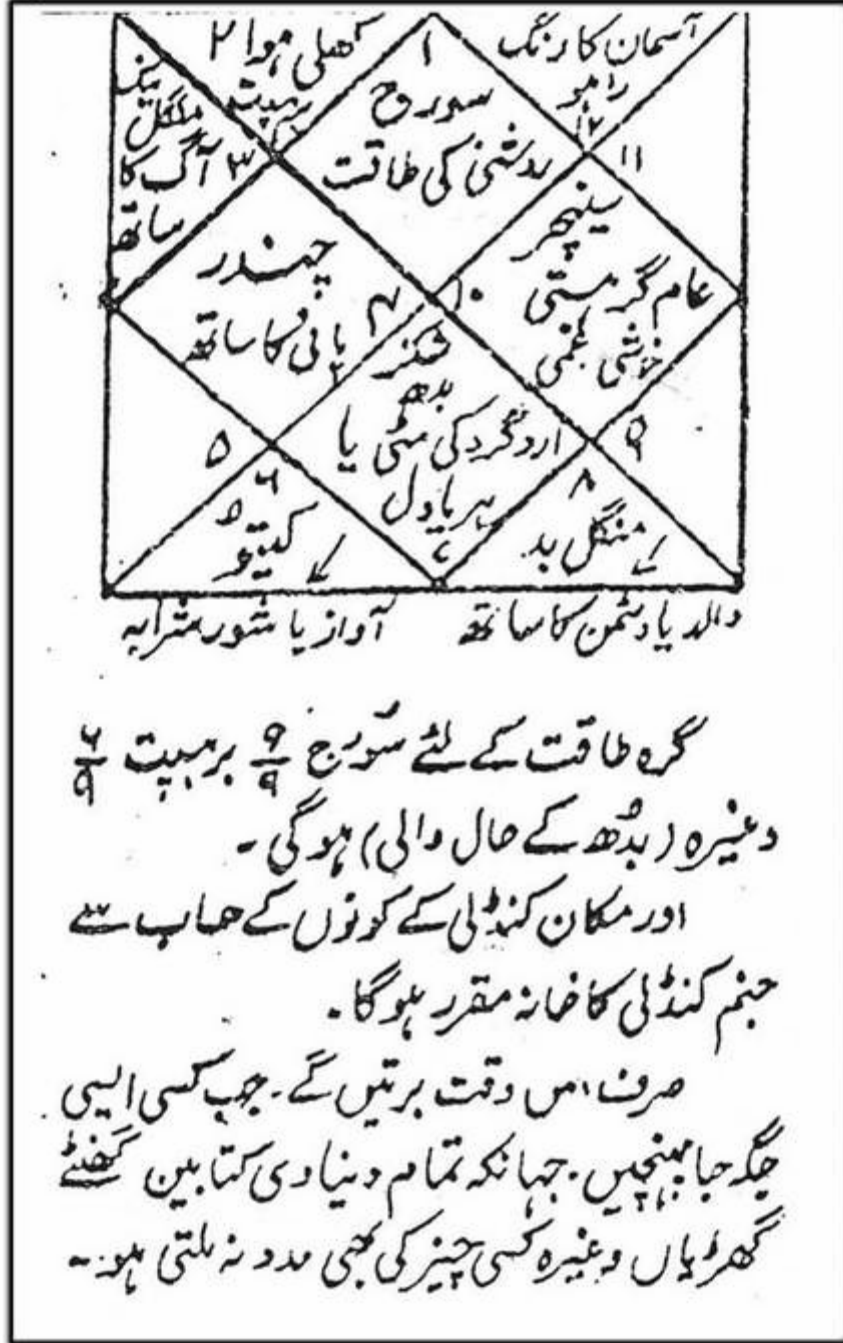 آسمان کا رنگ
راہو
۱۲
۱
سورج
روشنی کی طاقت
کھلی ہوا ۲
برہسپت
منگل نیک
۳ آگ کا
ساتھ
۱۱
سنیچر
عام گرہستی
خوشی غمی
۱۰
چندر
۴
پانی کا ساتھ
شکر
بدھ
اردگرد کی مٹی یا
ہریاول
۷
۵
۶
کیتو
۹
۸
منگل بد
والد یا دشمن کا ساتھ
آواز یا شور شرابہ
گرہ طاقت کے لئے سُورج ۹/۹ برہسپت ۶/۹
وغیرہ (بُدھ کے حال والی) ہوگی ۔
اور مکان کنڈلی کے کونوں کے حساب سے
جنم کنڈلی کا خانہ مقرر ہوگا ۔
صرف اس وقت برتیں گے ۔ جب کسی ایسی
جگہ جا پہنچیں ۔ جہانکہ تمام دنیاوی کتابیں گھنٹے
گھڑیاں وغیرہ کسی چیز کی بھی مدد نہ ملتی ہو ۔